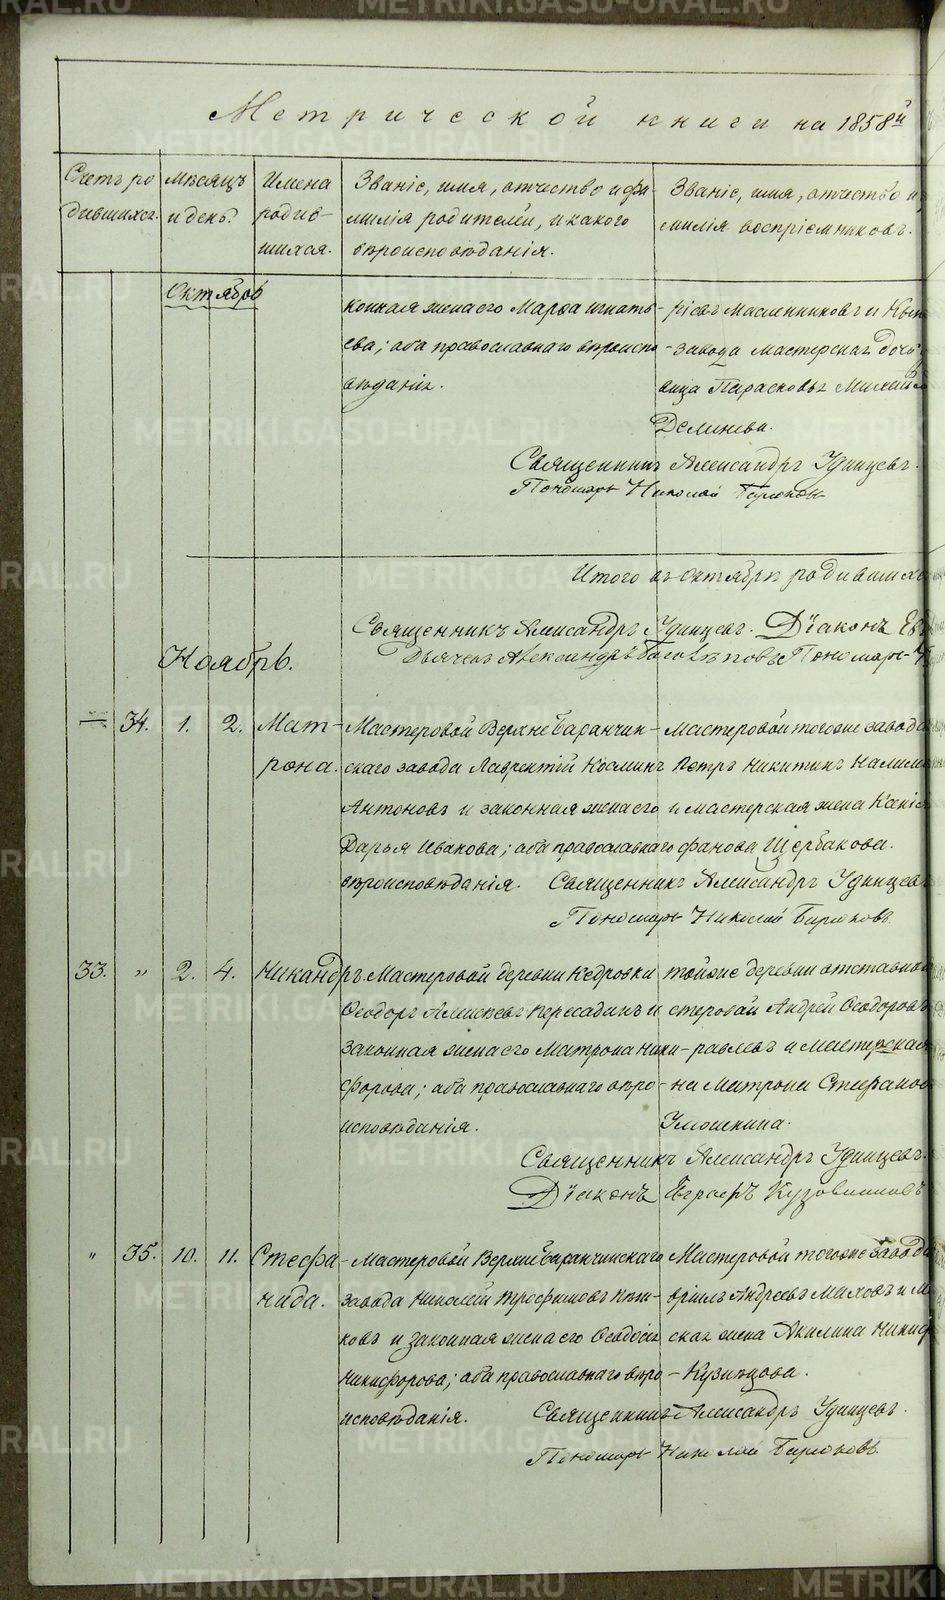 Метрической книги на 1858й
Счетъ ро
дившихся.
Мѣсяцъ
и день.
Имена
родив-
шихся.
Званіе, имя, отчество и фа-
милія родителей, и какого
вѣроисповѣданія.
Званіе, имя, отчество и
милія воспріемниковъ.
Октябрь
конная жена его Марѳа Игнать-
ева; оба православнаго вѣроиспо-
вѣданія.
Масленниковъ и
завода мастерская дочь
вица Парасковья Михай
Священникъ Александръ Удинцевъ.
Пономарь Николай Бирюковъ
Итого въ октябрѣ родившихс
Священникъ Александръ Удинцевъ. Діаконъ
Дьячекъ Александръ Боголѣповъ Пономарь
Ноябрь.
34. 1. 2. Мат-
рона.
Мастеровой Верхнебаранчин-
скаго завода Лаврентій Косминъ
Антоновъ и законная жена его
Дарья Иванова; оба православнаго
вѣроисповѣданія.
Мастеровой тогоже завода
Петръ Никитинъ
и мастерская жена
фанова Щербакова.
Священникъ Александръ Удинцевъ
Пономарь Николай Бирюковъ
33. " 2. 4. Никандръ.
Мастеровой деревни Кедровки
Ѳеодоръ Алексѣевъ Пересадинъ и
законная жена его Матрона Ники-
форова; оба православнаго вѣро-
исповѣданія.
тойже деревни отставной
стеровой Андрей Ѳеодоровъ
равлевъ и мастерская
на Матрона Стефанов
Священникъ Александръ Удинцевъ.
Діаконъ Кузовниковъ
" 35. 10. 11. Стефа-
нида.
Мастеровой Верхнебаранчинскаго
завода Николай Трофимовъ
ковъ и законная жена его Ѳеодосья
Никифорова; оба православнаго вѣро-
исповѣданія.
Мастеровой тогоже завода
вріилъ Андреевъ Маховъ и М
ская жена Акилина Никиф
Кузнецова.
Священникъ Александръ Удинцевъ.
Пономарь Николай Бирюковъ
METRIKI.GASO-URAL.RU